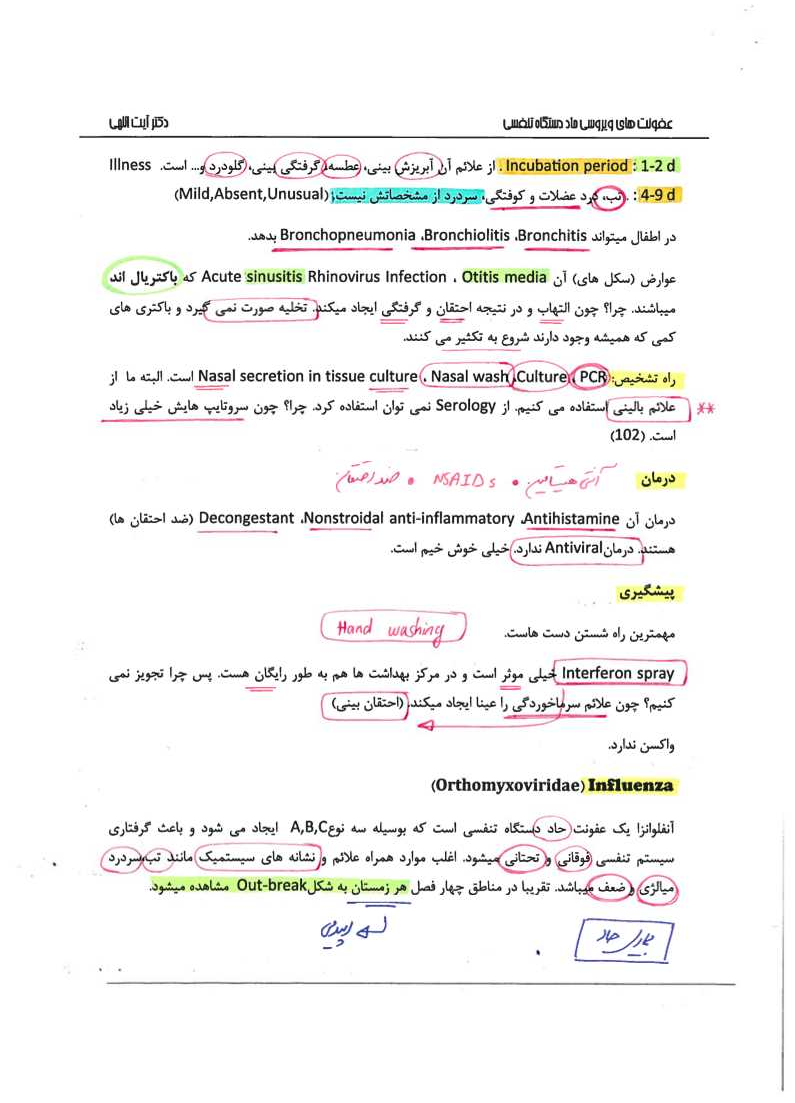 عفونت های ویروسی حاد دستگاه تنفسی دکتر آیت اللهی
Incubation period : 1-2 d . از علائم آن آبریزش بینی، عطسه، گرفتگی بینی، گلودرد و... است. Illness
4-9 d : . تب، درد عضلات و کوفتگی، سردرد از مشخصاتش نیست؛ (Mild,Absent,Unusual)
در اطفال میتواند Bronchitis، Bronchiolitis، Bronchopneumonia بدهد.
عوارض (سکل های) آن Otitis media ، Acute sinusitis Rhinovirus Infection که باکتریال اند
میباشند. چرا؟ چون التهاب و در نتیجه احتقان و گرفتگی ایجاد میکند. تخلیه صورت نمی گیرد و باکتری های
کمی که همیشه وجود دارند شروع به تکثیر می کنند.
راه تشخیص: PCR ، Culture، Nasal wash ، Nasal secretion in tissue culture است. البته ما از
** علائم بالینی استفاده می کنیم. از Serology نمی توان استفاده کرد. چرا؟ چون سروتایپ هایش خیلی زیاد
است. (102)
درمان آنتی هیستامین • NSAIDs • ضد احتقان
درمان آن Antihistamine، Nonstroidal anti-inflammatory، Decongestant (ضد احتقان ها)
هستند. درمان Antiviral ندارد. خیلی خوش خیم است.
پیشگیری
مهمترین راه شستن دست هاست. Hand washing
Interferon spray خیلی موثر است و در مرکز بهداشت ها هم به طور رایگان هست. پس چرا تجویز نمی
کنیم؟ چون علائم سرماخوردگی را عینا ایجاد میکند. (احتقان بینی)
واکسن ندارد.
Influenza (Orthomyxoviridae)
آنفلوانزا یک عفونت حاد دستگاه تنفسی است که بوسیله سه نوع A,B,C ایجاد می شود و باعث گرفتاری
سیستم تنفسی فوقانی و تحتانی میشود. اغلب موارد همراه علائم و نشانه های سیستمیک مانند تب، سردرد
میالژی و ضعف میباشد. تقریبا در مناطق چهار فصل هر زمستان به شکل Out-break مشاهده میشود.
بیماری حاد
اپیدمی